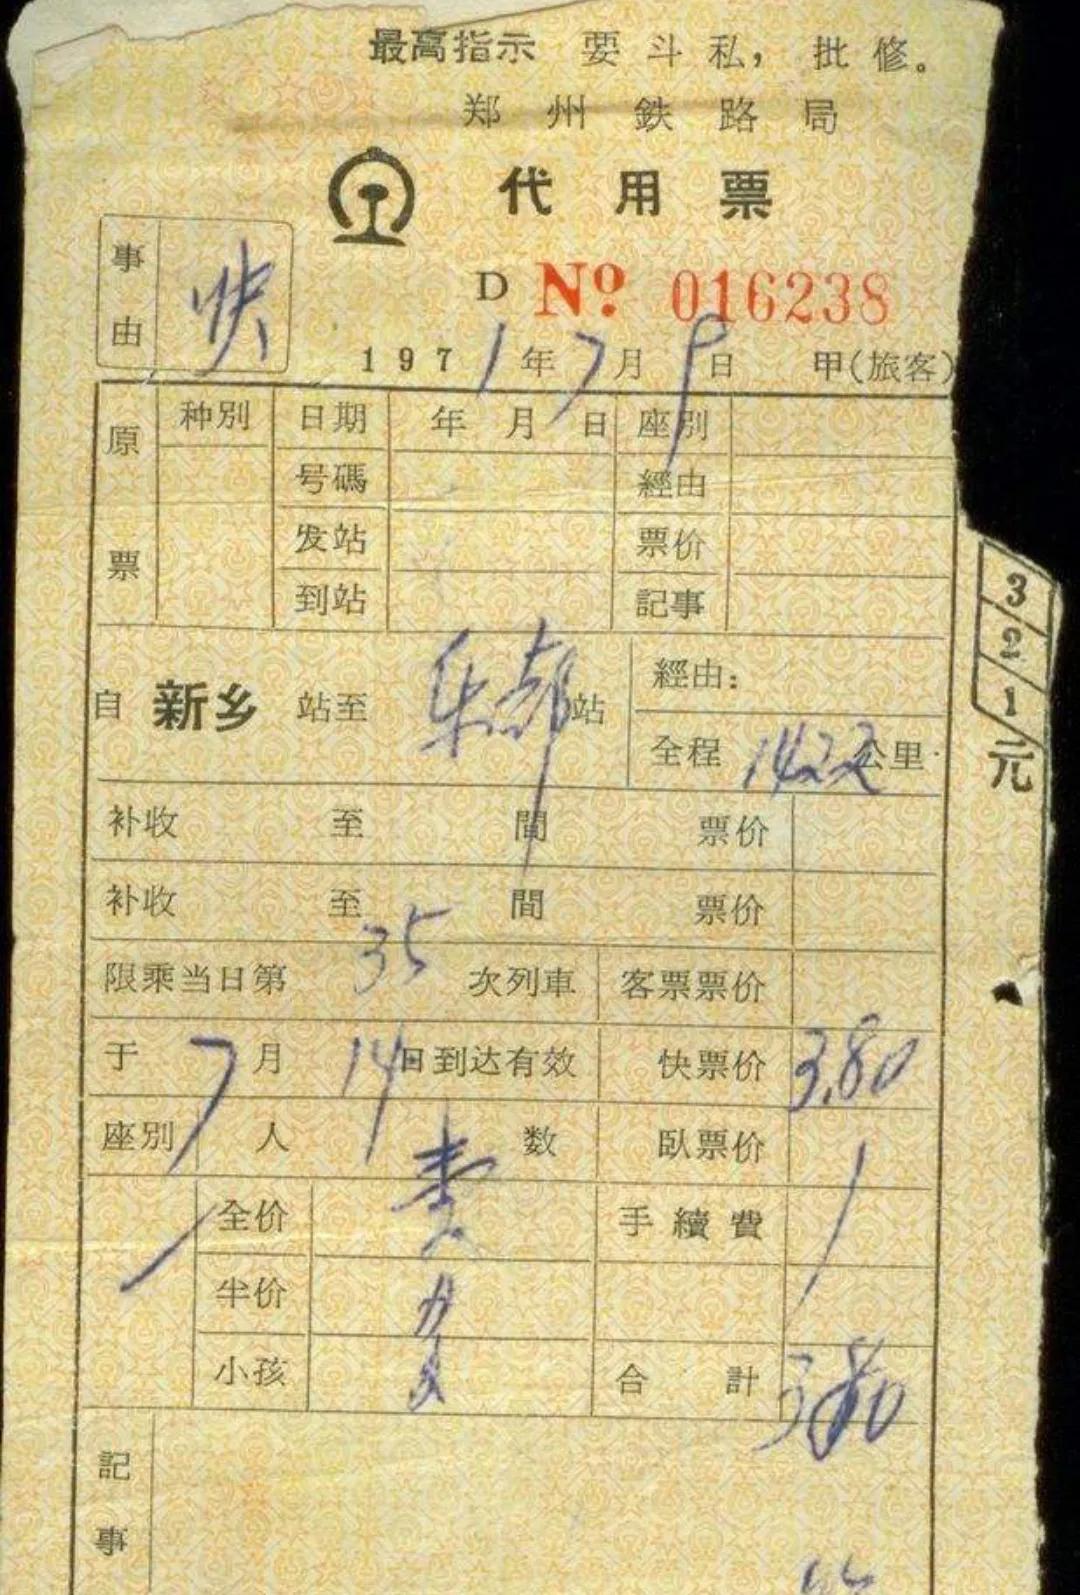 最高指示 要斗私，批修。
郑州鉄路局
代用票
事由 快
D No. 016238
1971年7月9日 甲(旅客)
原票 种別 日期 年 月 日 座別
号碼 經由
发站 票价
到站 記事
自 新乡 站至 乐都 站 經由：
全程 1422 公里
补收 至 間 票价
补收 至 間 票价
限乘当日第 35 次列車 客票票价
于 7 月 14 日到达有效 快票价 3.80
座別 人 数 臥票价
全价 壹 手續費
半价
小孩 合計 3.80
記事
3
2
1
元